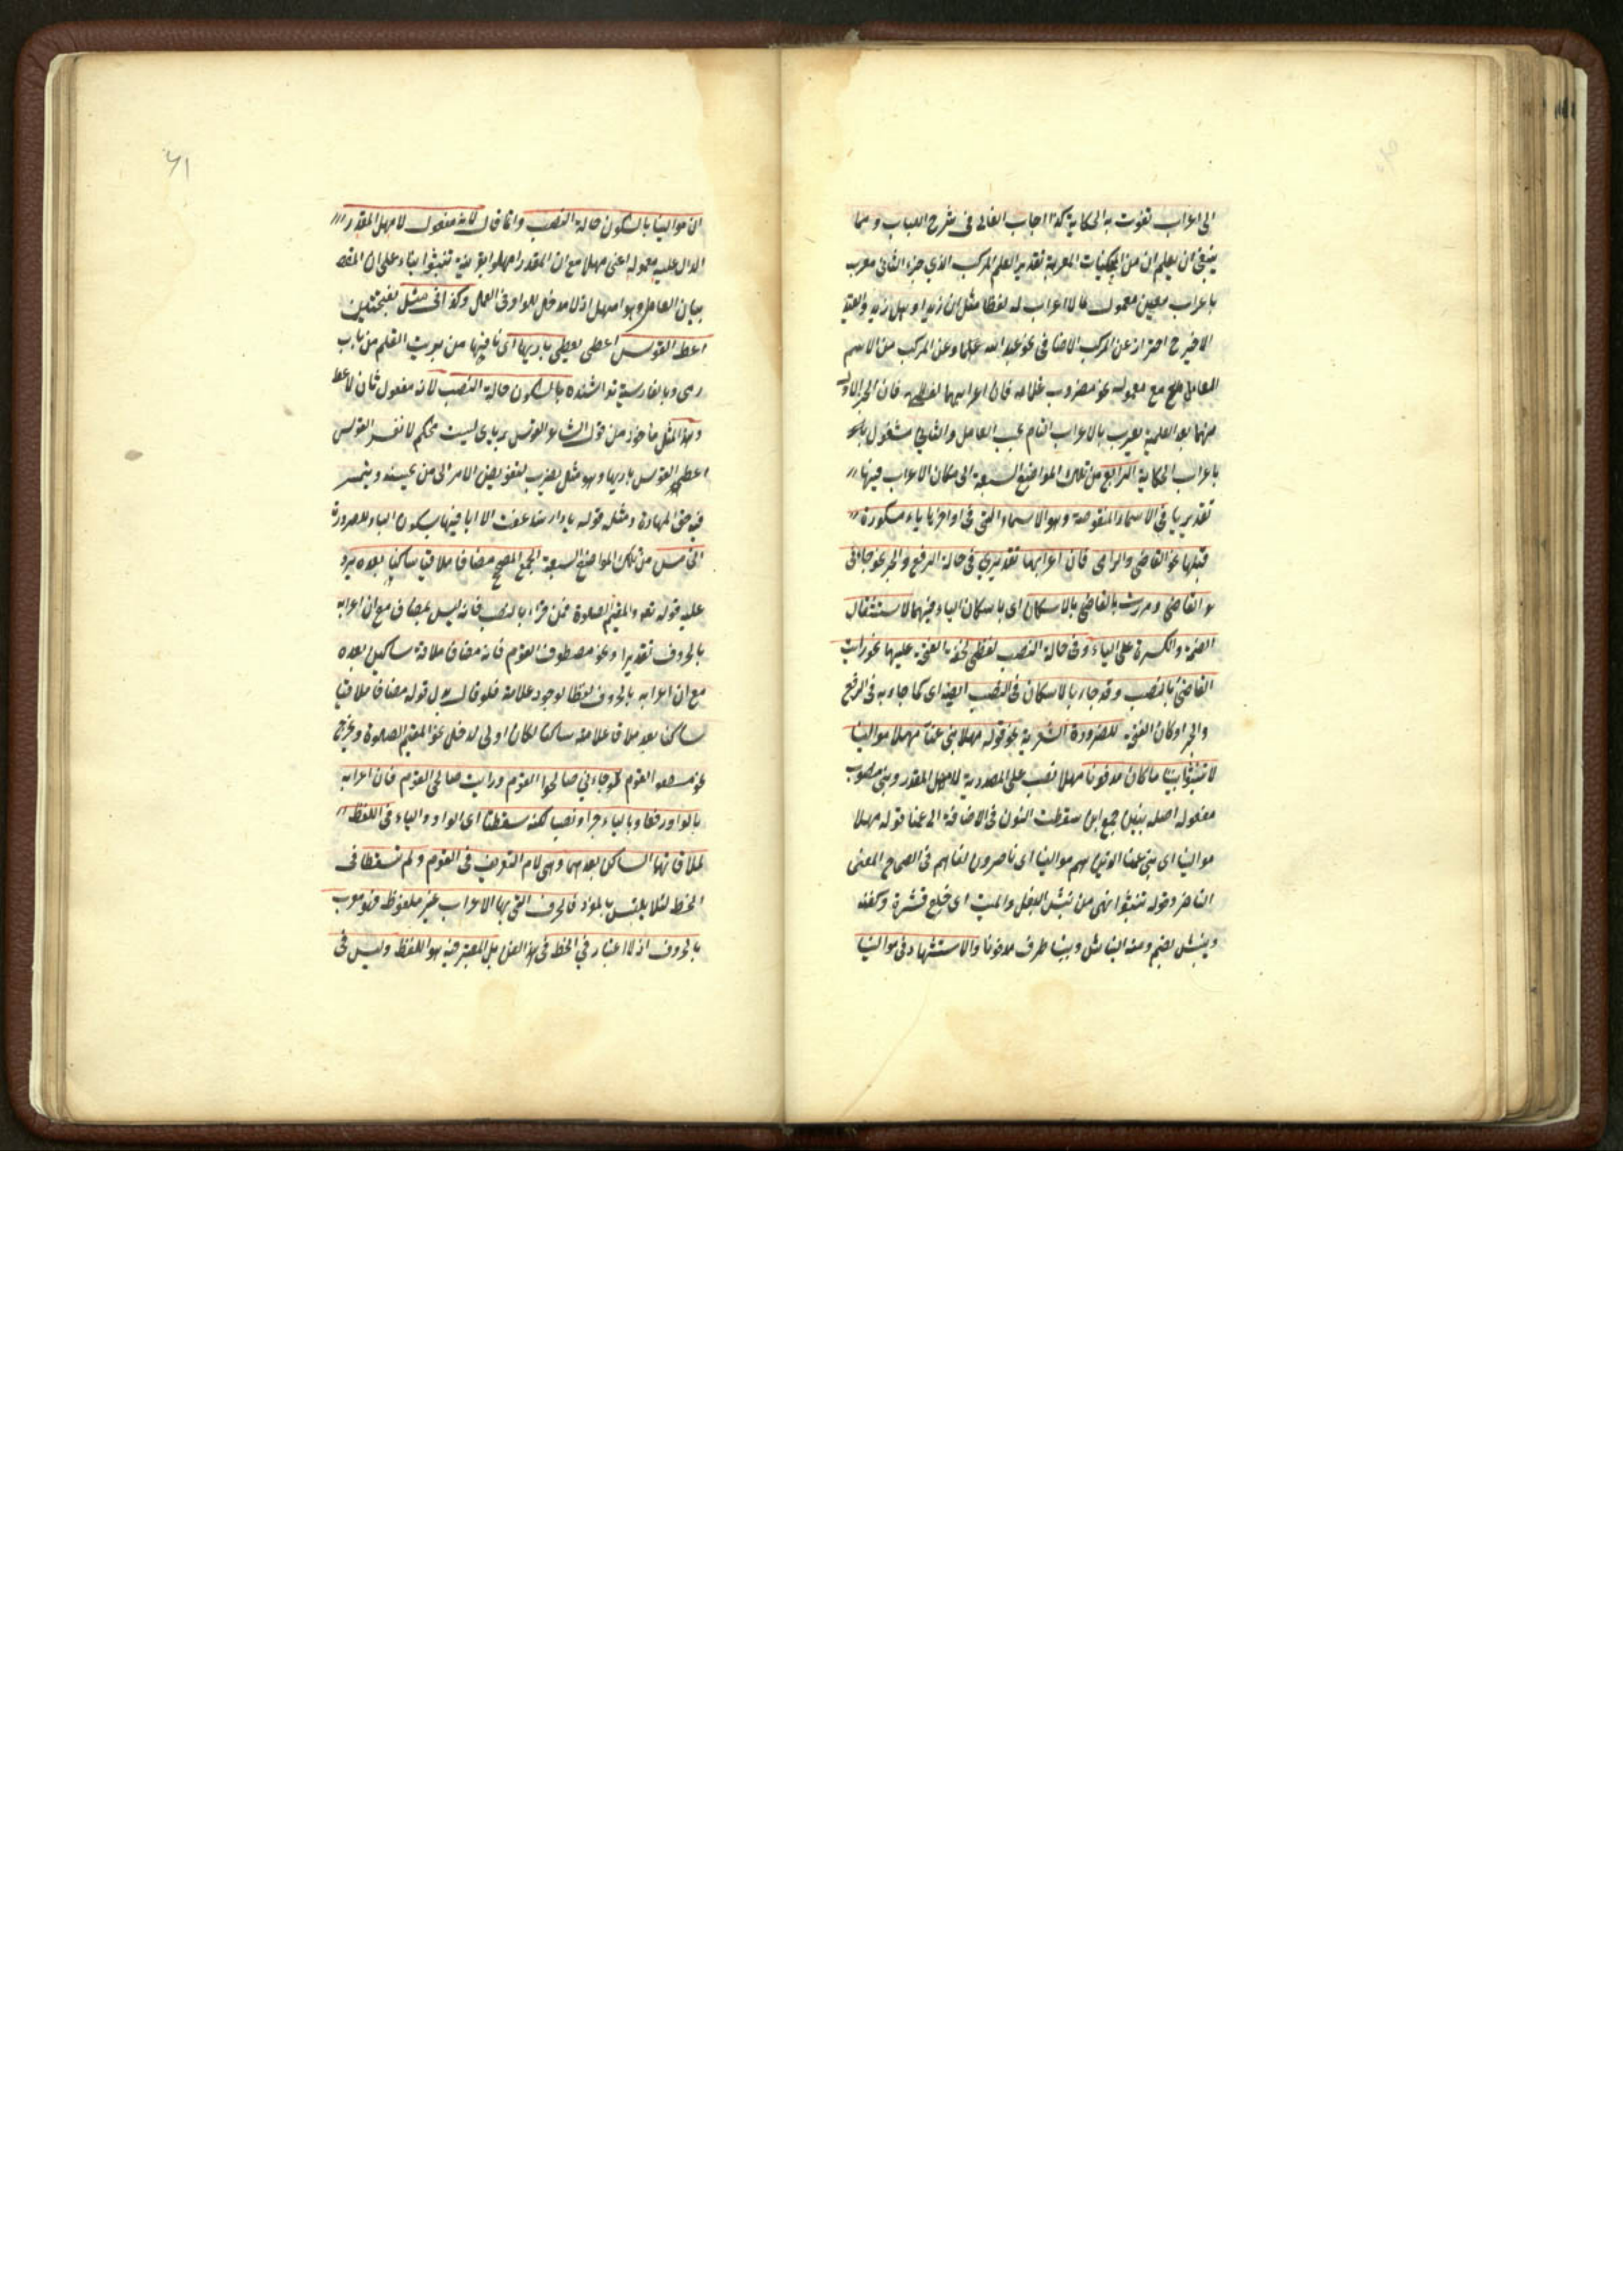 الى اعراب تفوت به الحكاية كذا اجاب الفالى فى شرح اللباب ومما
ينبغى ان يعلم ان من المحكيات المعربة تقديرا العلم المركب الذي جزء الثانى معرب
باعراب معين معمول لما لا اعراب له لفظا مثل ان زيدا وهل زيد والقيد
الاخير ح احتراز عن المركب الاضافى نحو عبد الله علما وعن المركب من الاسم
العامل مع معموله نحو مضروب غلامه فان اعرابهما لفظى فان الجزء الاول
منهما بعد العلمية يعرب بالاعراب التام بحسب العامل والثانى مشغول
باعراب الحكاية الرابع من تلك المواضع السبعة التى مكان الاعراب فيها
تقديريا فى الاسماء المنقوصة وهو الاسماء التى فى اواخرها ياء مكسورة
قبلها نحو القاضى والرامى فان اعرابهما تقديري فى حالة الرفع والجر نحو جائنى
القاضى ومررت بالقاضى بالاسكان اى باسكان الياء فيهما لاستثقال
الضمة والكسرة على الياء وفى حالة النصب لفظى لخفة الفتحة عليها نحو رأيت
القاضى بالنصب وقد جاء بالاسكان فى النصب ايضا كما جاء به فى الرفع
والجر وكان الفتح للضرورة الشعرية نحو قوله مهلا بنى عمنا مهلا موالينا
لا تنبشوا بيننا ما كان مدفونا مهلا نصب على المصدرية لامهل المقدر وبنى منصوب
مفعوله اصله بنين جمع ابن سقطت النون فى الاضافة الى عمنا قوله مهلا
موالينا اى بنى عمنا الذين هم موالينا اى ناصرون لنا هم فى الصحاح المعنى
الناصر وقوله تنبشوا نهى من نبش البقل والميت اى خلع قشرة وكفنه
وينبش بضم ومنه النباش وبيننا ظرف مدفونا والاستشهاد فى موالينا
٦١
لان موالينا بالسكون حالة النصب وانما قال لانه مفعول لامهل المقدر
الدال عليه معموله اعنى مهلا مع ان المقدر امهلوا بقرينة تنبشوا بناء على ان المقص
بيان العامل وهو امهل اذ لا مدخل للواو فى العمل وكذا فى مثل بفتحتين
اعط القوس اعطى يعطى باريها اى نافيها من بريت القلم من باب
رمى وبالفارسية تراشنده بالسكون حالة النصب لانه مفعول ثان لاعط
وهذا المثل ماخوذ من قول الشاعر القوس بريا ليست محكم لا تفسد القوس
اعطى القوس باريها وهو مثل يضرب بتفويض الامر الى من يحسنه ويتمر
فى حق المهادة ومثل قوله يا دار هند عفت الا اثافيها بسكون الياء للضرورة
الخامس من تلك المواضع السبعة الجمع المصحح مضافا ملاقيا ساكنا بعده يرد
عليه قوله تعو والمقيم الصلوة فمن قراء بالنصب فانه ليس بمضاف مع ان اعرابه
بالحروف تقديرا ونحو مصطفو القوم فانه مضاف ملاقة ساكن بعده
مع ان اعرابه بالحروف لفظا لوجود علامة فلو قال بدل قوله مضافا ملاقيا
ساكنا بعده ملاق علامته ساكنا لكان اولى لدخل نحو المقيم الصلوة وخرج
نحو مصطفو القوم نحو جاءني صالحوا القوم ورايت صالحى القوم فان اعرابه
بالواو رفعا وبالياء جرا ونصبا لكنه سقطتا اى الواو والياء فى اللفظ
لملاقاتهما الساكن بعدهما وهى لام التعريف فى القوم ولم تسقطا فى
الخط لئلا يلتبس بالمفرد فالحرف التى بها الاعراب غير ملفوظ فهو معرب
بالحروف اذ لا اعتبار في الخط فى هذا الفن بل المعتبر فيه هو اللفظ وليس فى